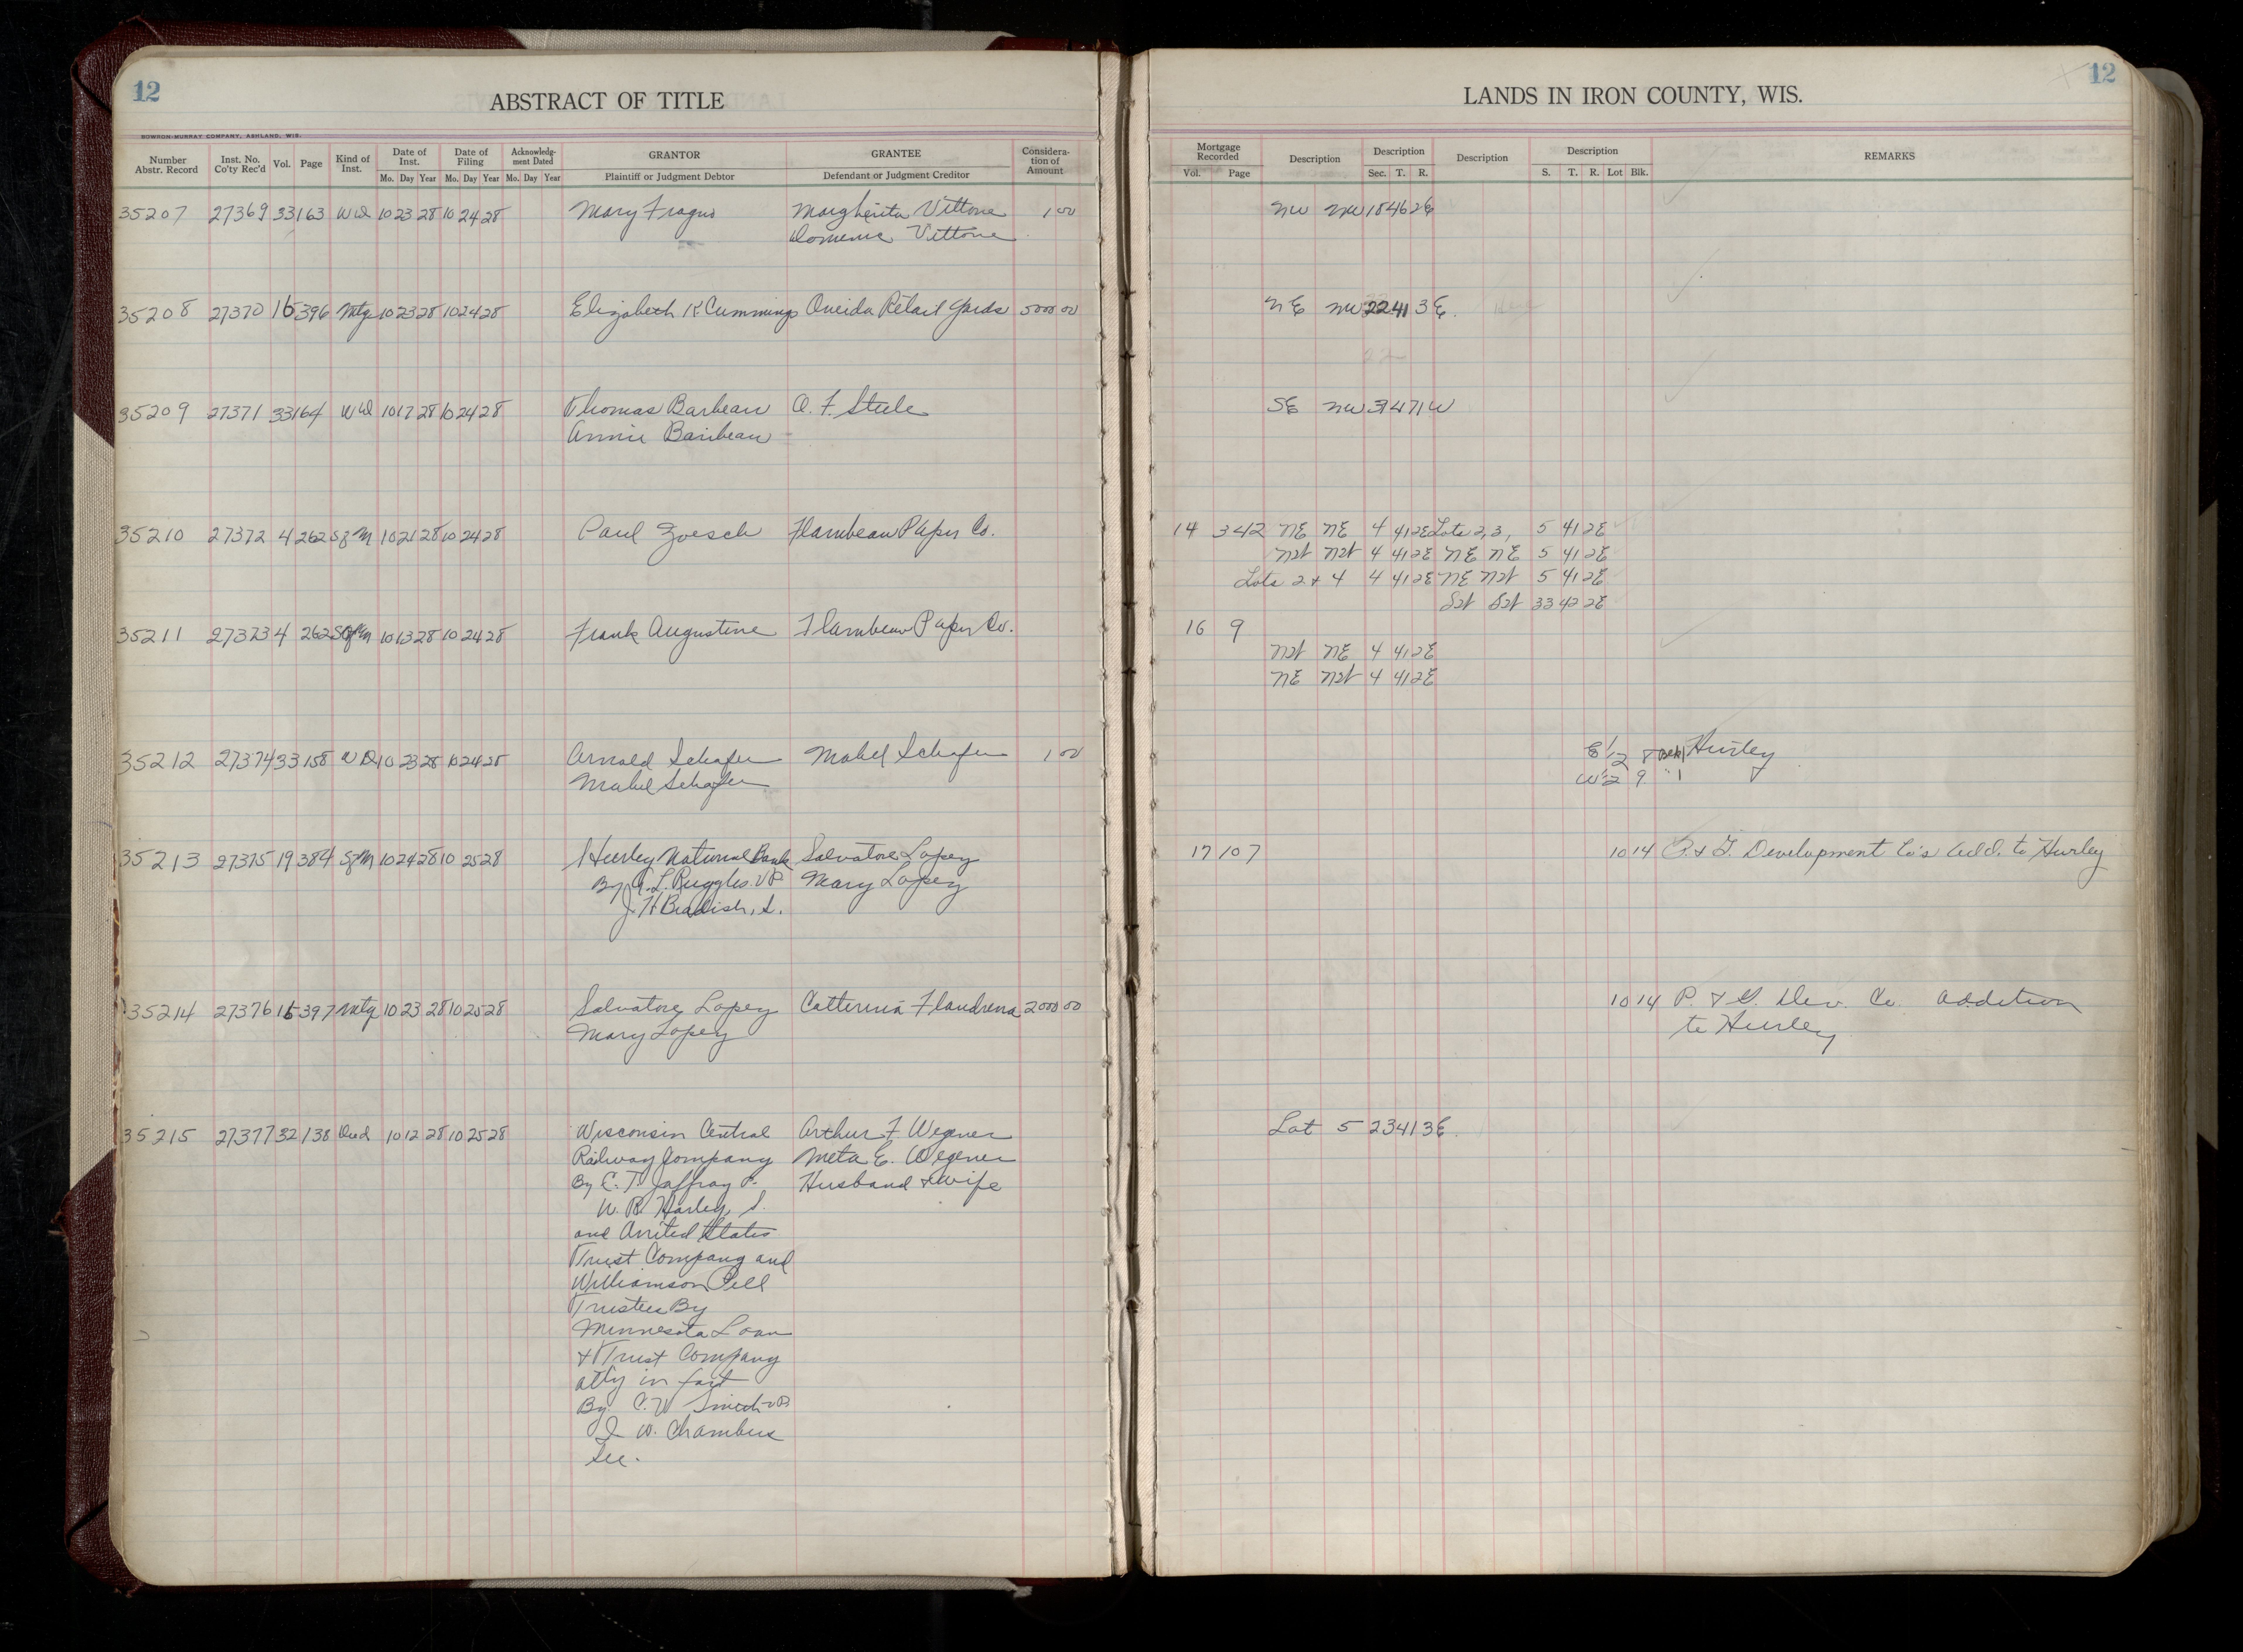 12
ABSTRACT OF TITLE
BOWRON-MURRAY COMPANY, ASHLAND, WIS.
Number Abstr. Record Inst. No. Co'ty Rec'd Vol. Page Kind of Inst. Date of Inst. Date of Filing Acknowledg-ment Dated GRANTOR GRANTEE Considera-tion of Amount
Mo. Day Year Mo. Day Year Mo. Day Year Plaintiff or Judgment Debtor Defendant or Judgment Creditor
35207 27369 33 163 WD 10 23 28 10 24 28 Mary Fragus Margherita Vittone 1 00
Domenic Vittone
35208 27370 16 396 Mtg 10 23 28 10 24 28 Elizabeth K Cummings Oneida Retail Yards 5000 00
35209 27371 33 164 WD 10 17 28 10 24 28 Thomas Barbeau A. F. Steele
Annie Baribeau
35210 27372 4 262 SfM 10 21 28 10 24 28 Paul Zoesch Flambeau Paper Co.
35211 27373 4 262 SfM 10 13 28 10 24 28 Frank Augustine Flambeau Paper Co.
35212 27374 33 158 WD 10 23 28 10 24 28 Arnold Schafer Mabel Schafer 1 00
Mabel Schafer
35213 27375 19 384 SfM 10 24 28 10 25 28 Hurley National Bank Salvatore Lopez
By A. L. Ruggles. VP Mary Lopez
J. H Bradish, S.
35214 27376 16 397 Mtg 10 23 28 10 25 28 Salvatore Lopez Catterina Flandrena 2000 00
Mary Lopez
35215 27377 32 138 Deed 10 12 28 10 25 28 Wisconsin Central Arthur F Wegener
Railway Company Meta E. Wegener
By C. T. Jaffray P. Husband & Wife
W. R. Harley, S.
and United States
Trust Company and
Williamson Pell
Trustees By
Minnesota Loan
& Trust Company
atty in fact
By. C. W Smith VP
I W. Chambers
Sec.
12
LANDS IN IRON COUNTY, WIS.
Mortgage Recorded Description Description Description Description REMARKS
Vol. Page Sec. T. R. S. T. R. Lot Blk.
NW NW 18 46 2E
NE NW 22 41 3E.
SE NW 31 47 1W
14 342 NE NE 4 41 2E Lots 2, 3, 5 41 2E
NW NW 4 41 2E NE NE 5 41 2E
Lots 2 & 4 4 41 2E NE NW 5 41 2E
SW SW 33 42 2E
16 9
NW NE 4 41 2E
NE NW 4 41 2E
E 1/2 8 Blk 1 Hurley
W 1/2 9 " 1
17 107 10 14 P. & G. Development Co's Add. to Hurley
10 14 P. & G. Dev. Co. Addition
to Hurley
Lot 5 23 41 3E.